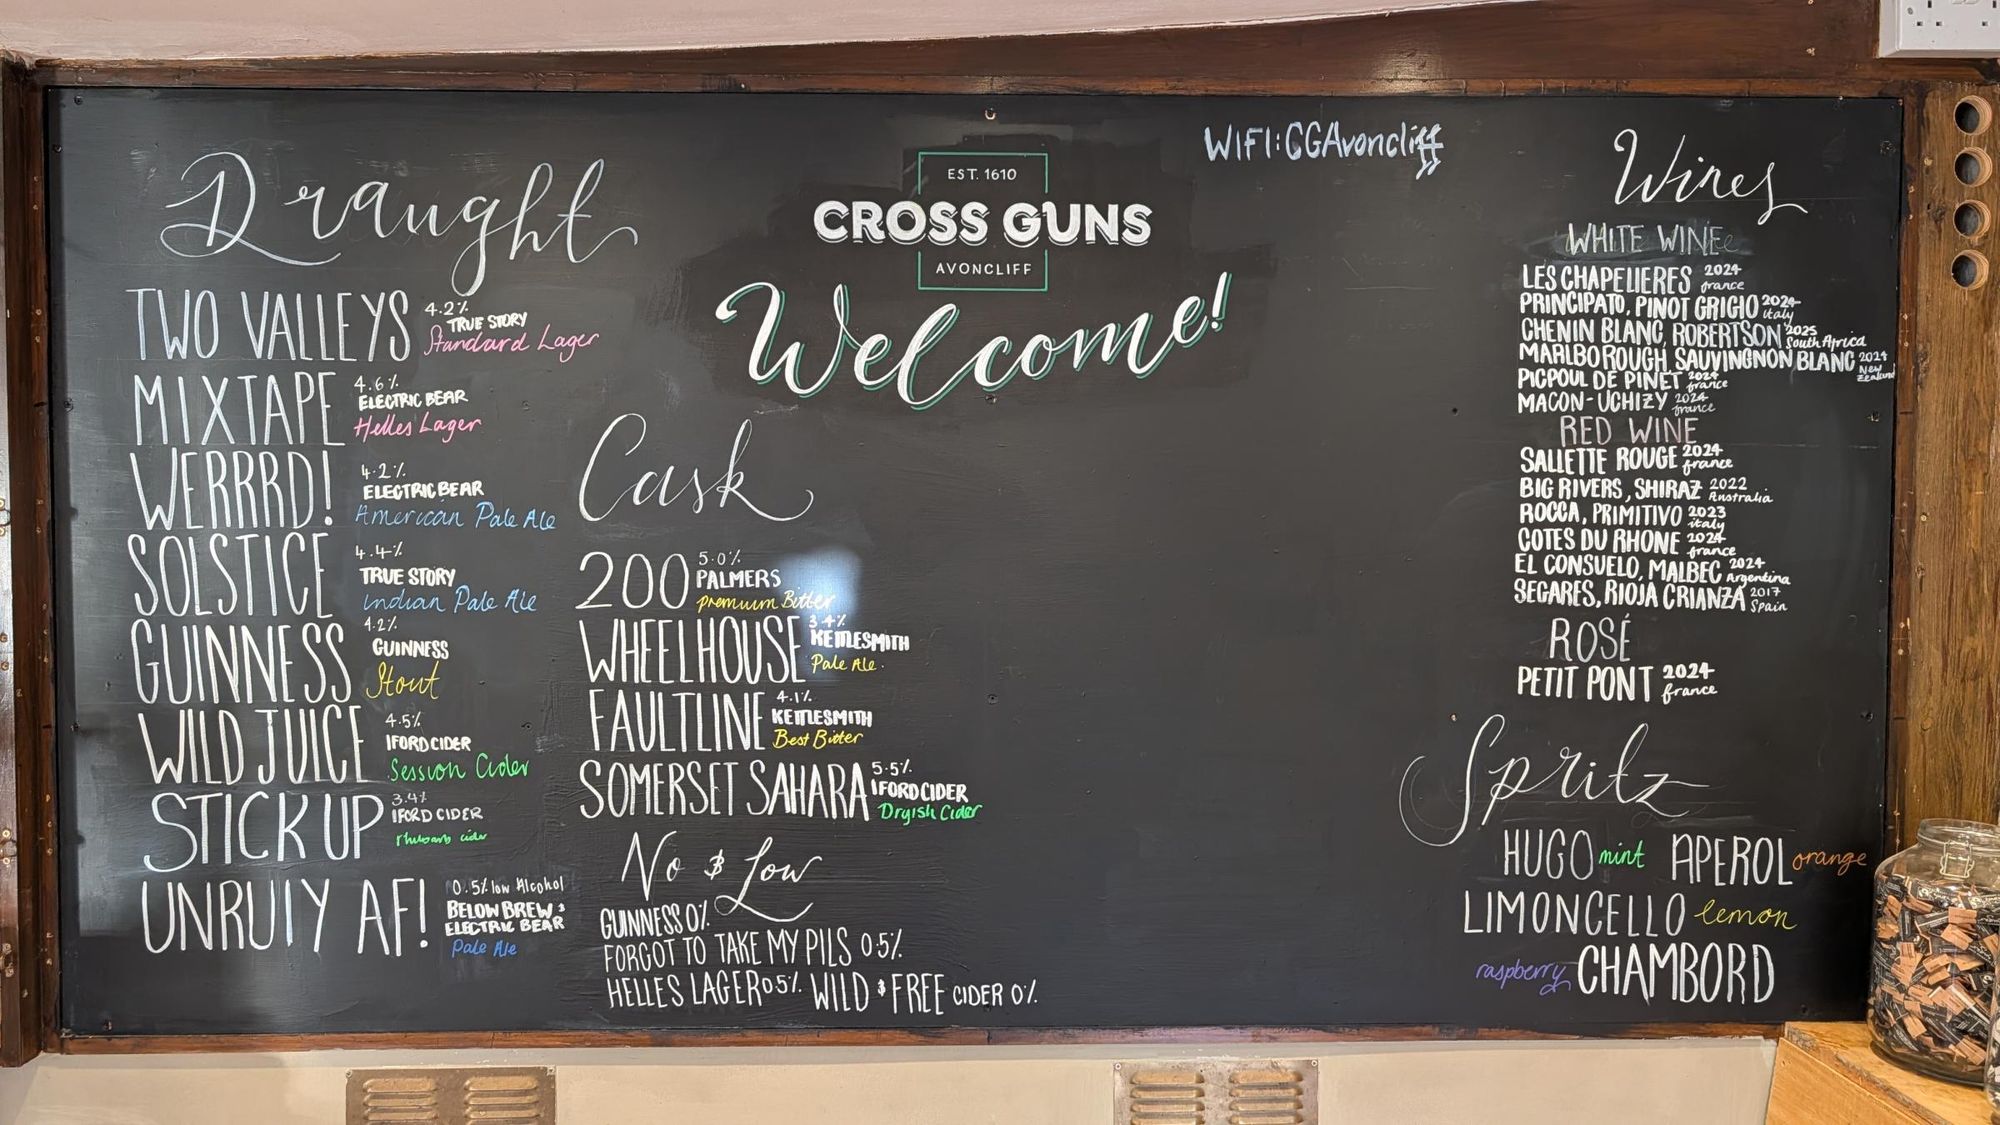 Draught
TWO VALLEYS 4.2%
TRUE STORY
Standard Lager
MIXTAPE 4.6%
ELECTRIC BEAR
Helles Lager
WERRRD! 4.2%
ELECTRIC BEAR
American Pale Ale
SOLSTICE 4.4%
TRUE STORY
Indian Pale Ale
GUINNESS 4.2%
GUINNESS
Stout
WILD JUICE 4.5%
IFORD CIDER
Session Cider
STICK UP 3.4%
IFORD CIDER
rhubarb cider
UNRULY AF! 0.5% low Alcohol
BELOW BREW &
ELECTRIC BEAR
Pale Ale
EST. 1610
CROSS GUNS
AVONCLIFF
Welcome!
WIFI:CGAvoncliff
Cask
200 5.0%
PALMERS
premium Bitter
WHEELHOUSE 3.4%
KETTLESMITH
Pale Ale.
FAULTLINE 4.1%
KETTLESMITH
Best Bitter
SOMERSET SAHARA 5.5%
IFORD CIDER
Dryish Cider
No & Low
GUINNESS 0%
FORGOT TO TAKE MY PILS 0.5%
HELLES LAGER 0.5% WILD & FREE CIDER 0%
Wines
WHITE WINE
LES CHAPELIERES 2024 france
PRINCIPATO, PINOT GRIGIO 2024 italy
CHENIN BLANC, ROBERTSON 2025 South Africa
MARLBOROUGH SAUVINGNON BLANC 2024 New Zealand
PICPOUL DE PINET 2024 france
MACON-UCHIZY 2024 france
RED WINE
SALLETTE ROUGE 2024 france
BIG RIVERS, SHIRAZ 2022 Australia
ROCCA, PRIMITIVO 2023 italy
COTES DU RHONE 2024 france
EL CONSUELO, MALBEC 2024 Argentina
SEGARES, RIOJA CRIANZA 2017 Spain
ROSÉ
PETIT PONT 2024 france
Spritz
HUGO mint APEROL orange
LIMONCELLO lemon
raspberry CHAMBORD